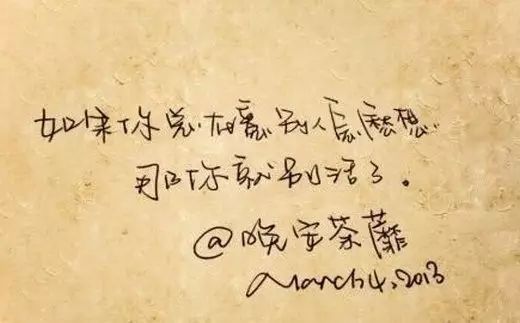 如果你总在意别人怎么想
那你就别活了。
@晚安荼蘼
March 4, 2013